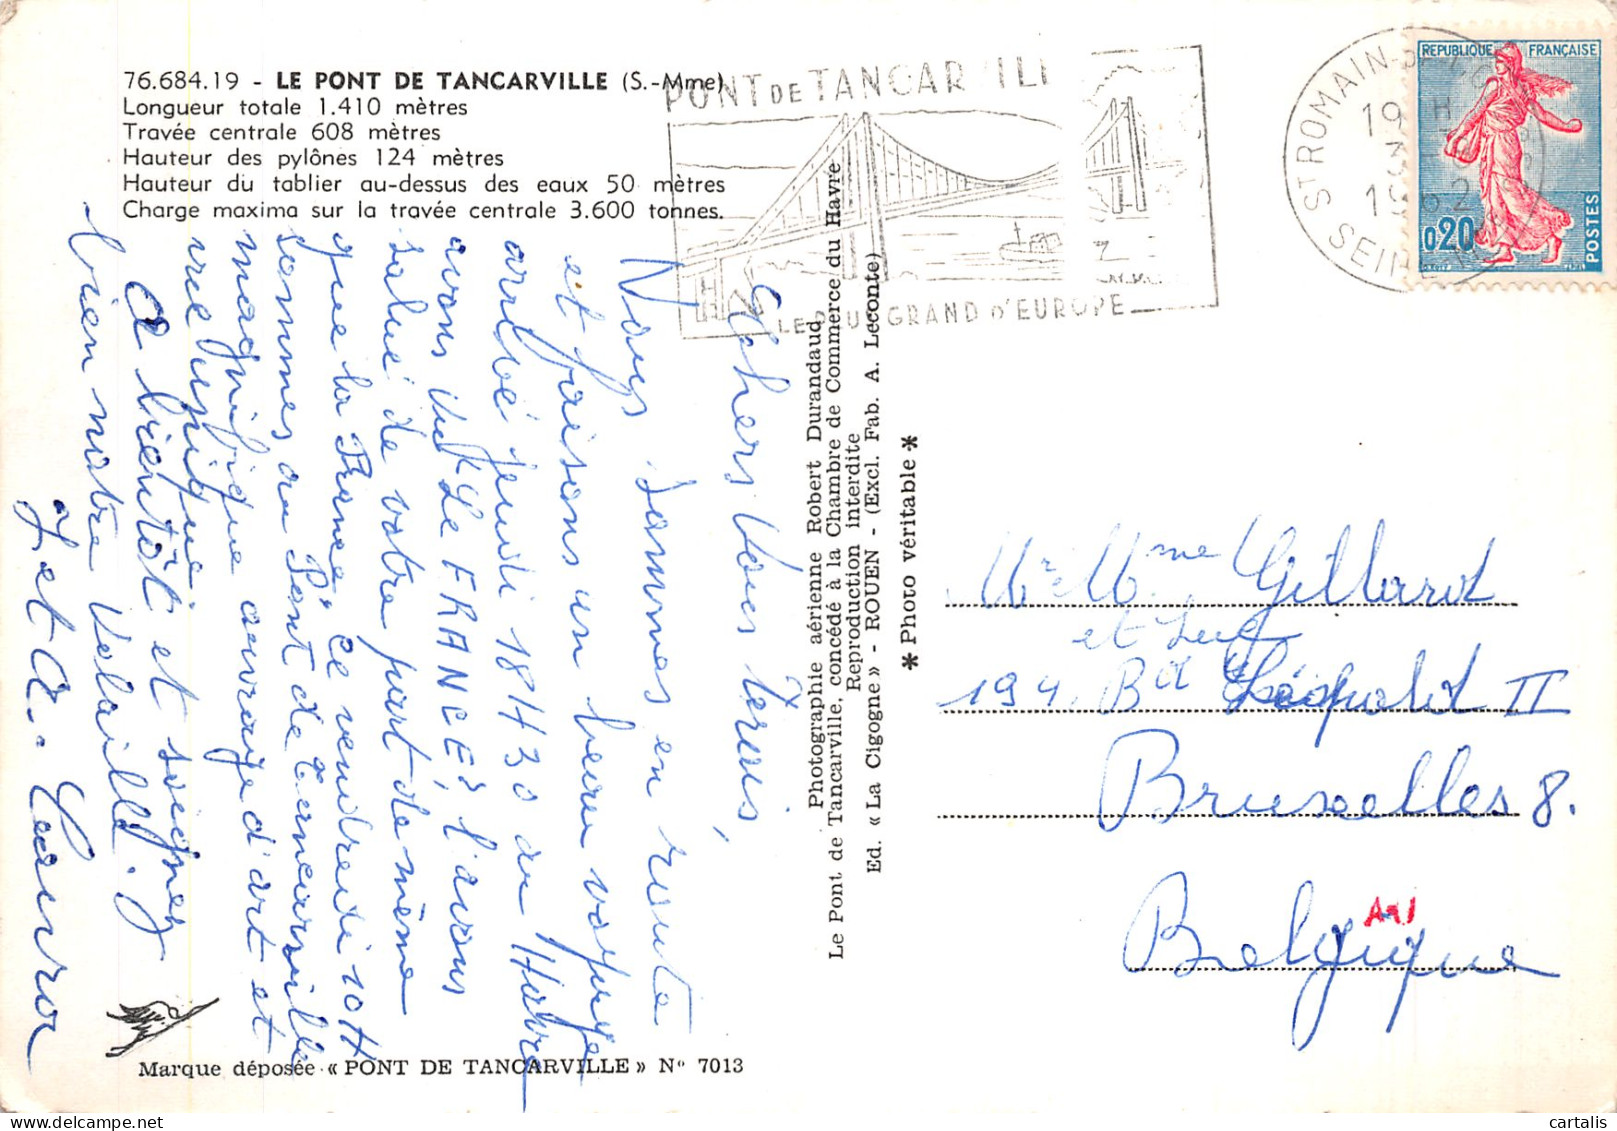 76.684.19 - LE PONT DE TANCARVILLE (S.-Mme)
Longueur totale 1.410 mètres
Travée centrale 608 mètres
Hauteur des pylônes 124 mètres
Hauteur du tablier au-dessus des eaux 50 mètres
Charge maxima sur la travée centrale 3.600 tonnes.
PONT DE TANCAR ILL
LE PLUS GRAND D'EUROPE
ST ROMAIN-DE-CO
19 H
3
1962
SEINE M
REPUBLIQUE FRANÇAISE
0,20
POSTES
Chers Vous
Nous sommes en route
et faisons un heureux voyage
arrivé jeudi 18H30 au Havre
avons vu "Le FRANCE", l'avons
salué de votre part de même
que la France, ce vendredi 10H
sommes au Pont de Tancarville
magnifique ouvrage d'art et
vue unique
A bientôt et soignez
bien notre volaille.
J et A.
Photographie aérienne Robert Durandaud
Le Pont de Tancarville, concédé à la Chambre de Commerce du Havre
Reproduction interdite
Ed. « La Cigogne » - ROUEN - (Excl. Fab. A. Leconte)
* Photo véritable *
Mr Mme Gillard
et
194, Bd Léopold II
Bruxelles 8.
Belgique
A91
Marque déposée « PONT DE TANCARVILLE » N° 7013
cartalis